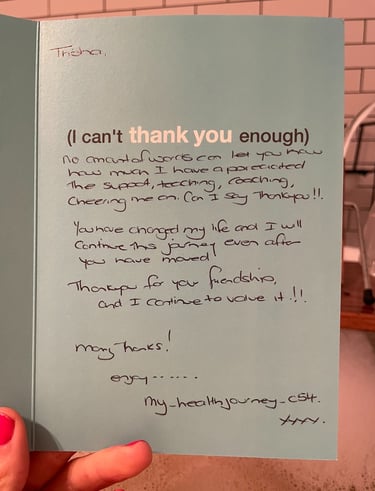 Trisha,
(I can't thank you enough)
no amount of words can let you know
how much I have appreciated
the support, teaching, coaching,
cheering me on. Can I say Thankyou!!.
You have changed my life and I will
continue this journey even after
you have moved!
Thankyou for your friendship,
and I continue to value it.!!.
many Thanks!
enjoy......
my_healthjourney_c54.
xxxx.